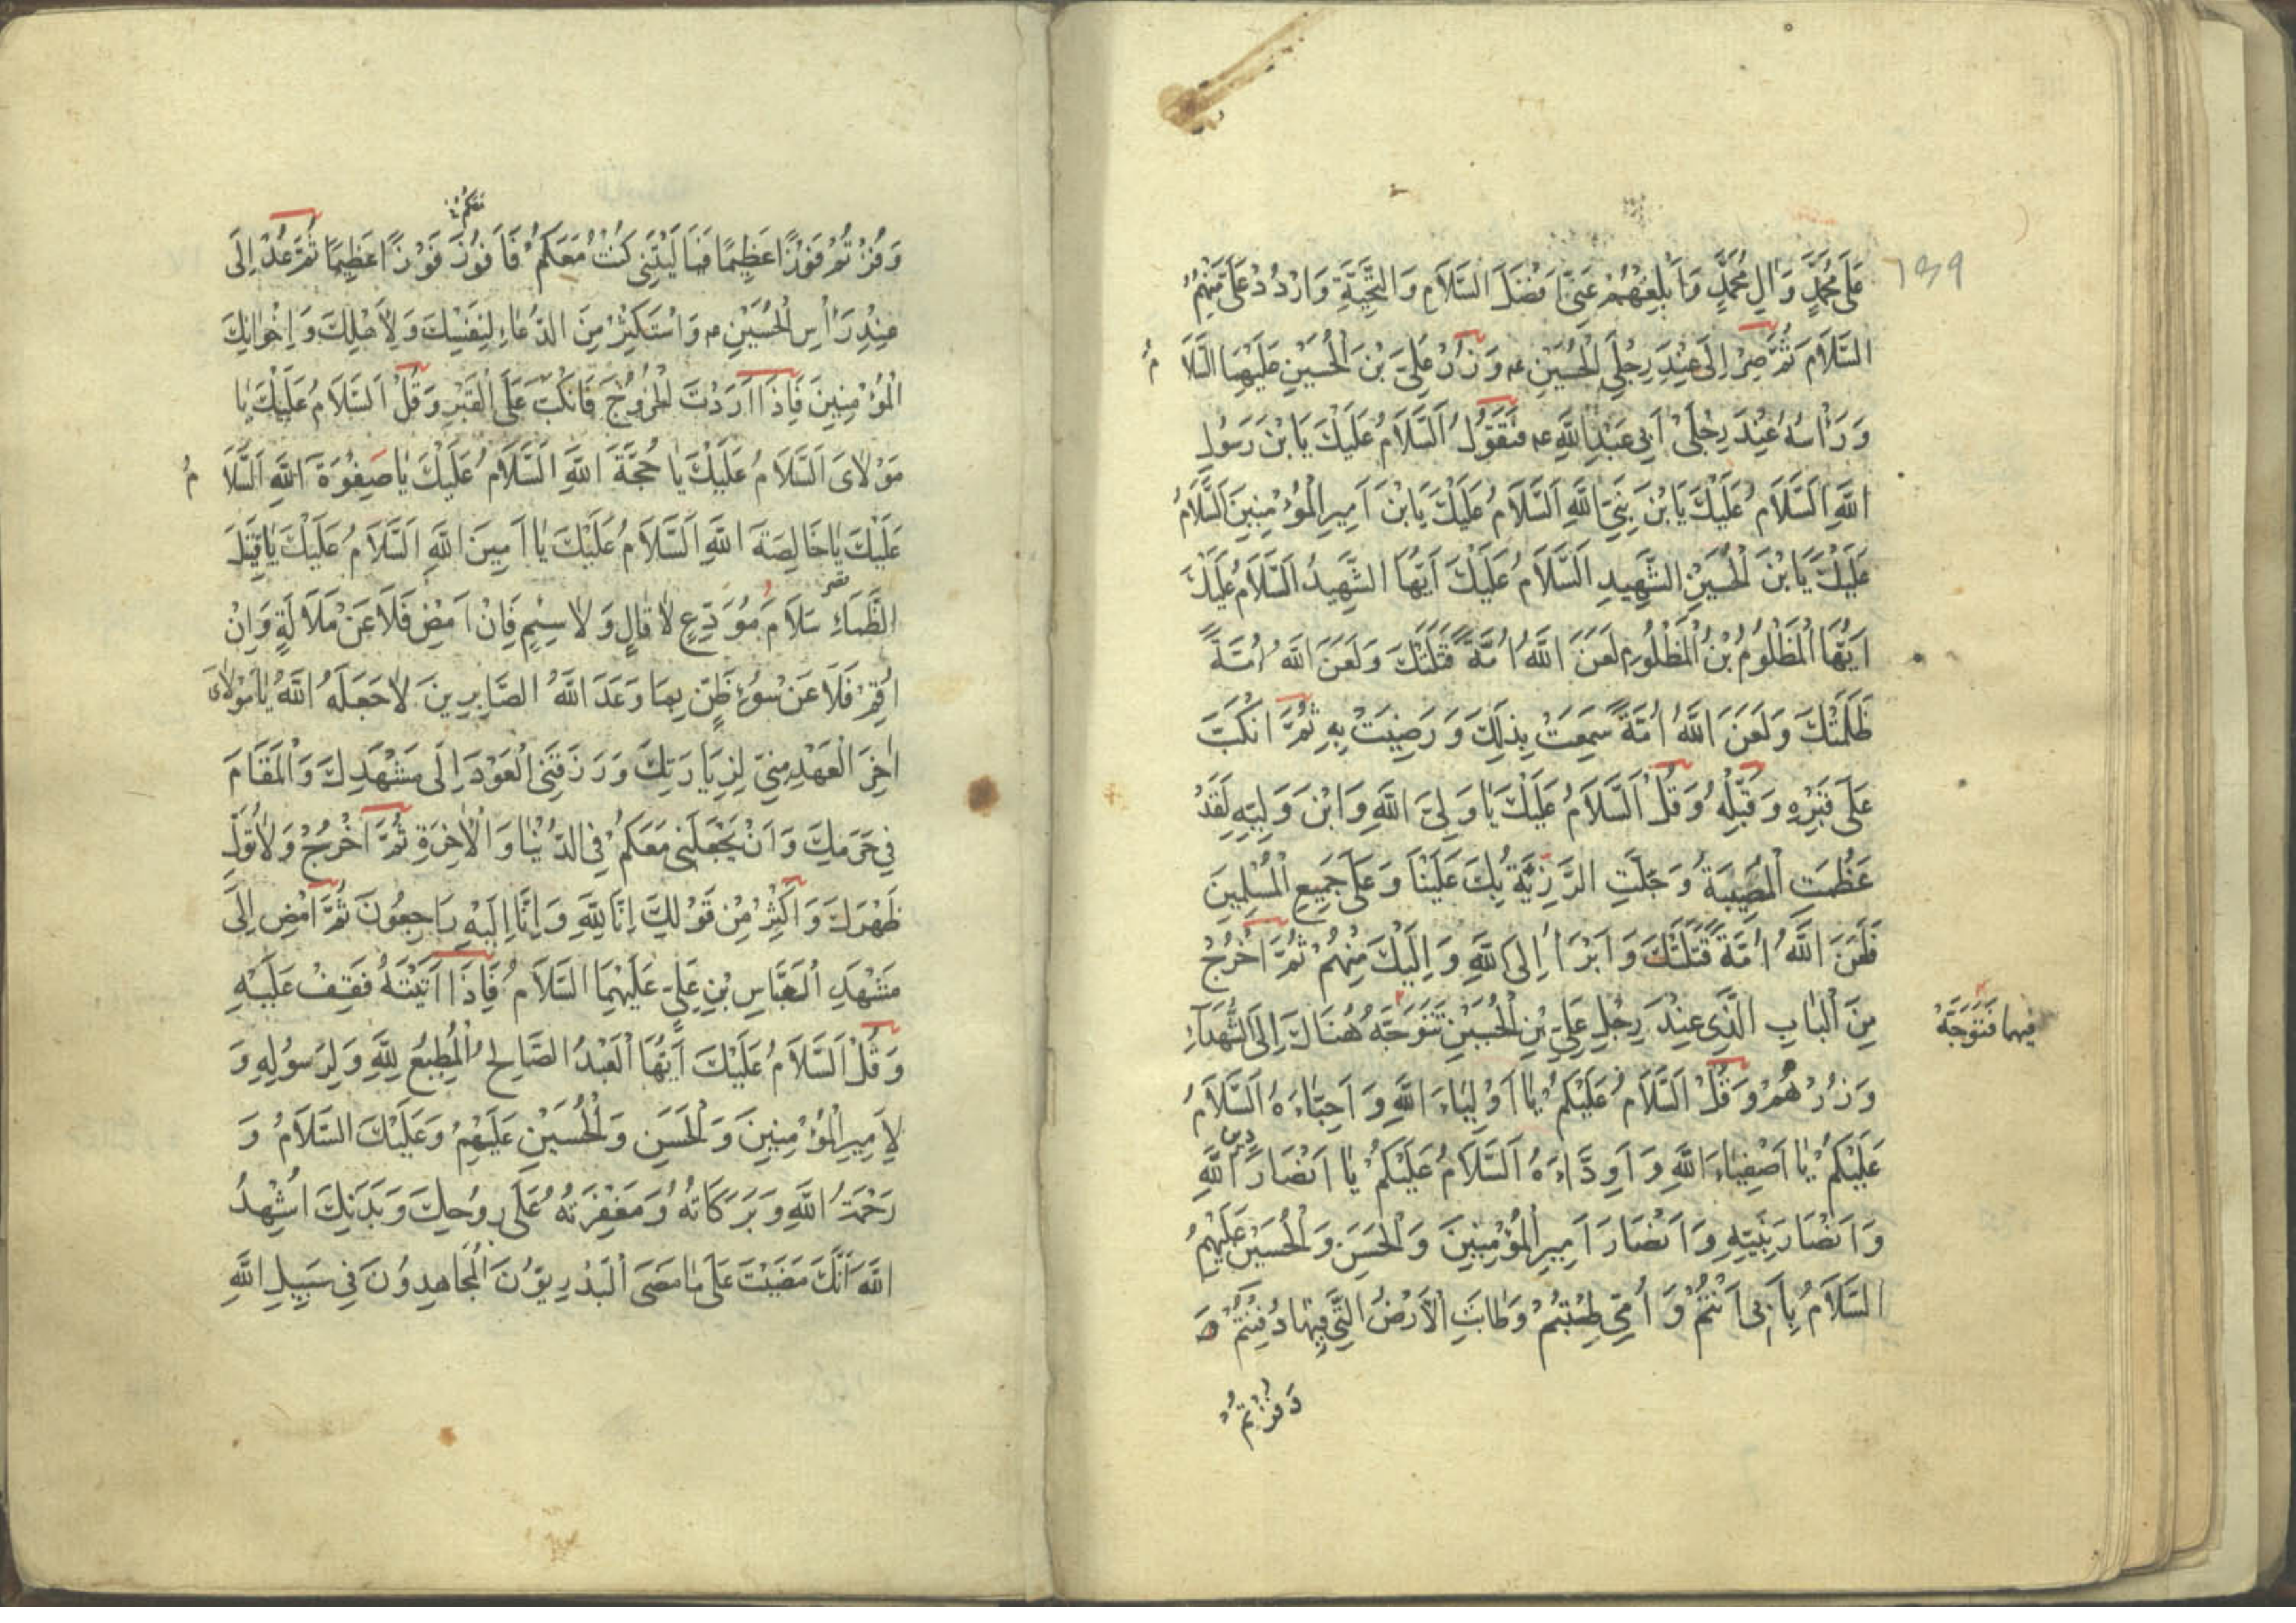 ١٣٩
عَلَى مُحَمَّدٍ وَآلِ مُحَمَّدٍ وَأَبْلِغْهُمْ عَنِّي أَفْضَلَ السَّلَامِ وَالتَّحِيَّةِ وَارْدُدْ عَلَيَّ مِنْهُمُ
السَّلَامَ ثُمَّ صِرْ إِلَى عِنْدِ رِجْلَيِ الْحُسَيْنِ ع وَزُرْ عَلِيَّ بْنَ الْحُسَيْنِ عَلَيْهِمَا السَّلَامُ
وَرَأْسُهُ عِنْدَ رِجْلَيْ أَبِي عَبْدِ اللَّهِ ع فَتَقُولُ اَلسَّلَامُ عَلَيْكَ يَا بْنَ رَسُولِ
اللَّهِ اَلسَّلَامُ عَلَيْكَ يَا بْنَ نَبِيِّ اللَّهِ اَلسَّلَامُ عَلَيْكَ يَا بْنَ أَمِيرِ الْمُؤْمِنِينَ اَلسَّلَامُ
عَلَيْكَ يَا بْنَ الْحُسَيْنِ الشَّهِيدِ اَلسَّلَامُ عَلَيْكَ أَيُّهَا الشَّهِيدُ اَلسَّلَامُ عَلَيْكَ
أَيُّهَا الْمَظْلُومُ بْنُ الْمَظْلُومِ لَعَنَ اللَّهُ أُمَّةً قَتَلَتْكَ وَلَعَنَ اللَّهُ أُمَّةً
ظَلَمَتْكَ وَلَعَنَ اللَّهُ أُمَّةً سَمِعَتْ بِذَلِكَ وَرَضِيَتْ بِهِ ثُمَّ انْكَبَّ
عَلَى قَبْرِهِ وَقَبِّلْهُ وَقُلْ اَلسَّلَامُ عَلَيْكَ يَا وَلِيَّ اللَّهِ وَابْنَ وَلِيِّهِ لَقَدْ
عَظُمَتِ الْمُصِيبَةُ وَجَلَّتِ الرَّزِيَّةُ بِكَ عَلَيْنَا وَعَلَى جَمِيعِ الْمُسْلِمِينَ
فَلَعَنَ اللَّهُ أُمَّةً قَتَلَتْكَ وَأَبْرَأُ إِلَى اللَّهِ وَإِلَيْكَ مِنْهُمْ ثُمَّ اخْرُجْ
مِنَ الْبَابِ الَّذِي عِنْدَ رِجْلِ عَلِيِّ بْنِ الْحُسَيْنِ تَتَوَجَّهُ هُنَاكَ إِلَى الشُّهَدَاءِ
فَتَوَجَّهْ
وَزُرْهُمْ وَقُلْ اَلسَّلَامُ عَلَيْكُمْ يَا أَوْلِيَاءَ اللَّهِ وَأَحِبَّاءَهُ اَلسَّلَامُ
عَلَيْكُمْ يَا أَصْفِيَاءَ اللَّهِ وَأَوِدَّاءَهُ اَلسَّلَامُ عَلَيْكُمْ يَا أَنْصَارَ دين اللَّهِ
وَأَنْصَارَ نَبِيِّهِ وَأَنْصَارَ أَمِيرِ الْمُؤْمِنِينَ وَالْحَسَنِ وَالْحُسَيْنِ عَلَيْهِمُ
السَّلَامُ بِأَبِي أَنْتُمْ وَأُمِّي طِبْتُمْ وَطَابَتِ الْأَرْضُ الَّتِي فِيهَا دُفِنْتُمْ
وَفُزْتُمْ
وَفُزْتُمْ فَوْزًا عَظِيمًا فَيَا لَيْتَنِي كُنْتُ مَعَكُمْ فَأَفُوزَ فَوْزًا عَظِيمًا ثُمَّ عُدْ إِلَى
عِنْدِ رَأْسِ الْحُسَيْنِ ع وَاسْتَكْثِرْ مِنَ الدُّعَاءِ لِنَفْسِكَ وَلِأَهْلِكَ وَإِخْوَانِكَ
الْمُؤْمِنِينَ فَإِذَا أَرَدْتَ الْخُرُوجَ فَانْكَبَّ عَلَى الْقَبْرِ وَقُلْ اَلسَّلَامُ عَلَيْكَ يَا
مَوْلَايَ اَلسَّلَامُ عَلَيْكَ يَا حُجَّةَ اللَّهِ اَلسَّلَامُ عَلَيْكَ يَا صَفْوَةَ اللَّهِ اَلسَّلَامُ
عَلَيْكَ يَا خَالِصَةَ اللَّهِ اَلسَّلَامُ عَلَيْكَ يَا أَمِينَ اللَّهِ اَلسَّلَامُ عَلَيْكَ يَا قَتِيلَ
الظَّمَاءِ سَلَامَ مُوَدِّعٍ لَا قَالٍ وَلَا سَئِمٍ فَإِنْ أَمْضِ فَلَا عَنْ مَلَالَةٍ وَإِنْ
أُقِمْ فَلَا عَنْ سُوءِ ظَنٍّ بِمَا وَعَدَ اللَّهُ الصَّابِرِينَ لَا جَعَلَهُ اللَّهُ يَا مَوْلَايَ
آخِرَ الْعَهْدِ مِنِّي لِزِيَارَتِكَ وَرَزَقَنِي الْعَوْدَ إِلَى مَشْهَدِكَ وَالْمَقَامَ
فِي حَرَمِكَ وَأَنْ يَجْعَلَنِي مَعَكُمْ فِي الدُّنْيَا وَالْآخِرَةِ ثُمَّ اخْرُجْ وَلَا تُوَلِّ
ظَهْرَكَ وَأَكْثِرْ مِنْ قَوْلِكَ إِنَّا لِلَّهِ وَإِنَّا إِلَيْهِ رَاجِعُونَ ثُمَّ امْضِ إِلَى
مَشْهَدِ الْعَبَّاسِ بْنِ عَلِيٍّ عَلَيْهِمَا السَّلَامُ فَإِذَا أَتَيْتَهُ فَقِفْ عَلَيْهِ
وَقُلْ اَلسَّلَامُ عَلَيْكَ أَيُّهَا الْعَبْدُ الصَّالِحُ الْمُطِيعُ لِلَّهِ وَلِرَسُولِهِ وَ
لِأَمِيرِ الْمُؤْمِنِينَ وَالْحَسَنِ وَالْحُسَيْنِ عَلَيْهِمْ وَعَلَيْكَ السَّلَامُ وَ
رَحْمَةُ اللَّهِ وَبَرَكَاتُهُ وَمَغْفِرَتُهُ عَلَى رُوحِكَ وَبَدَنِكَ أُشْهِدُ
اللَّهَ أَنَّكَ مَضَيْتَ عَلَى مَا مَضَى الْبَدْرِيُّونَ الْمُجَاهِدُونَ فِي سَبِيلِ اللَّهِ